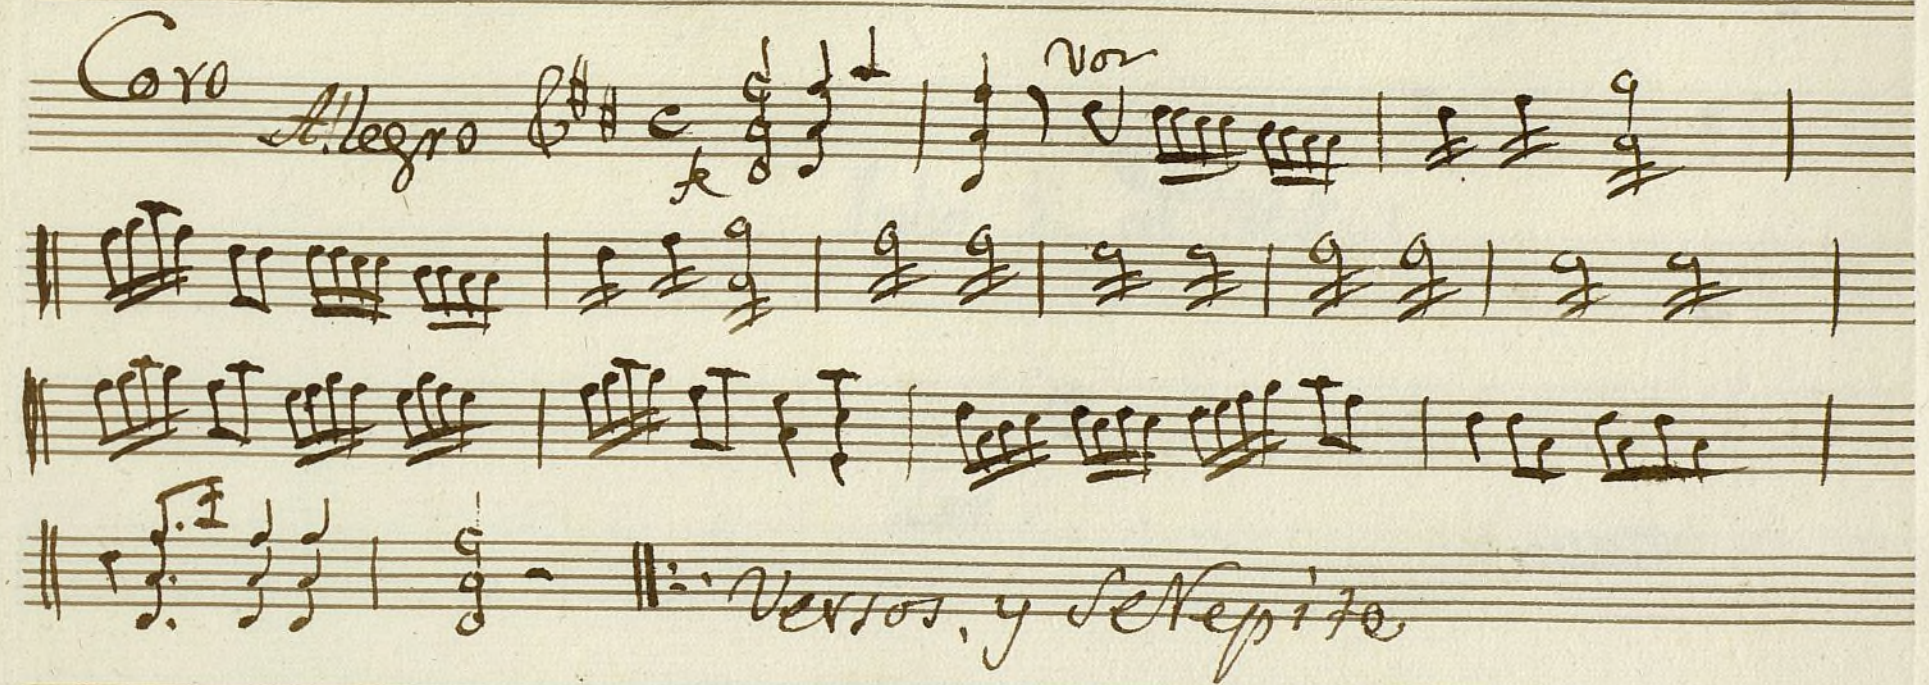 Coro
Allegro
Voz
Versos, y se Repite